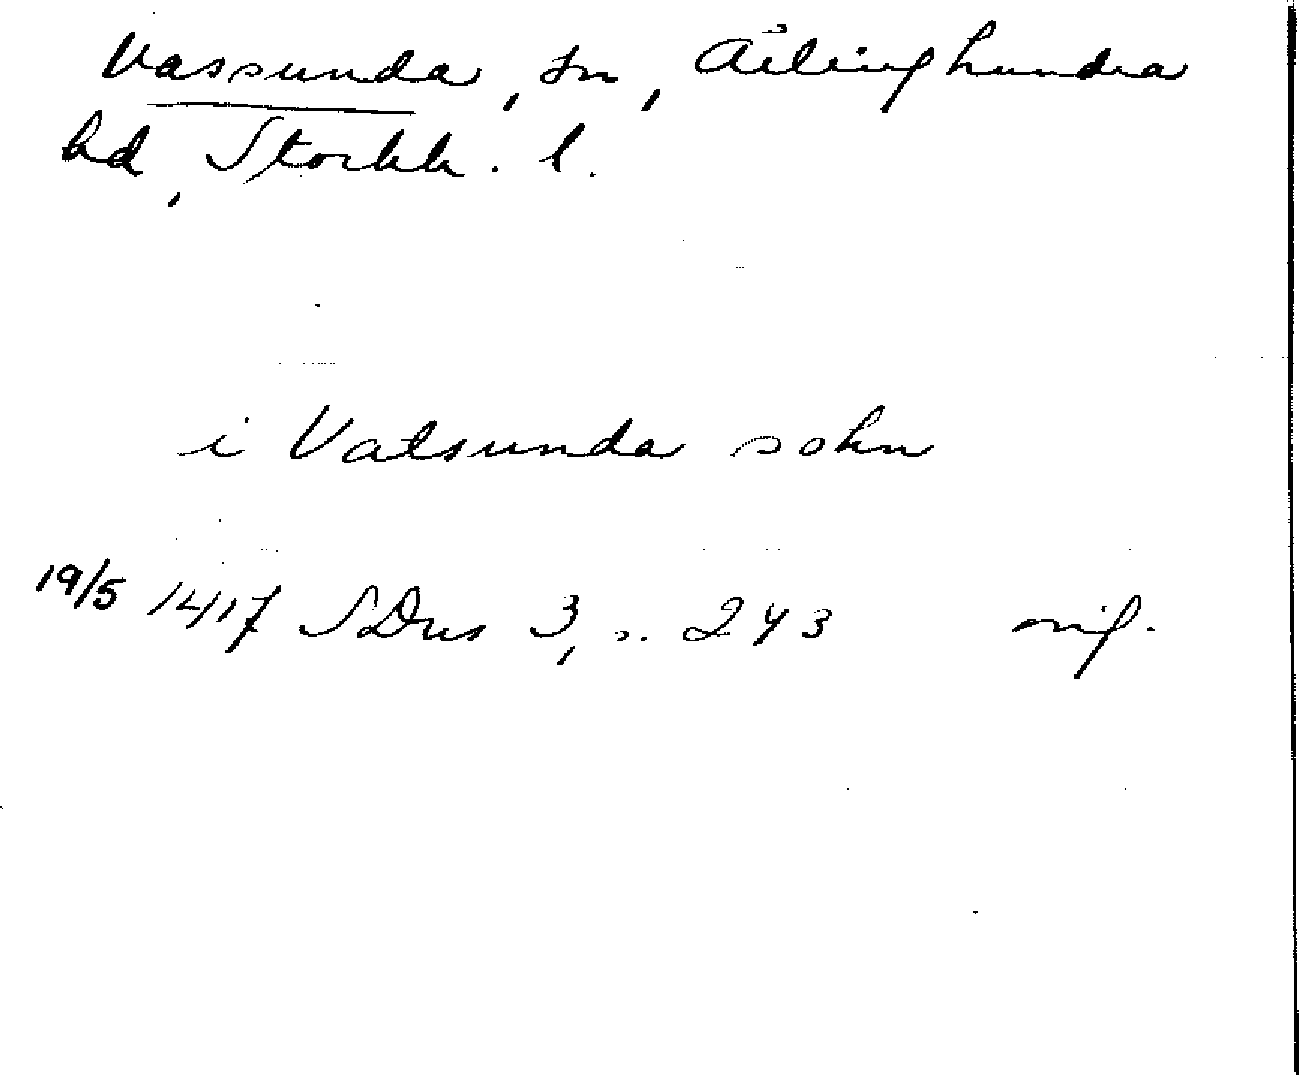 Vassunda, sn, Ärlinghundra
hd, Stockh. l.
i Vatsunda sokn
19/5 1417 SDns 3, s. 243 orig.